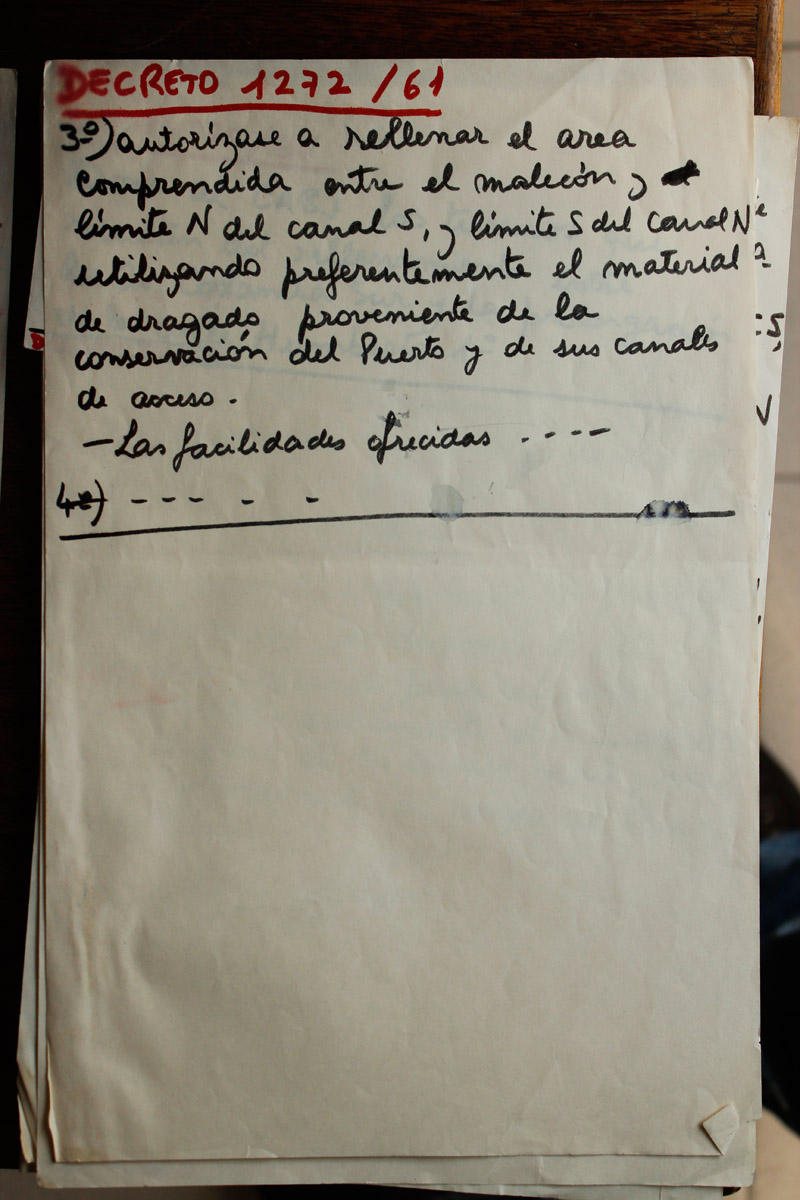 DECRETO 1272 / 61
3º) autorízase a rellenar el area
comprendida entre el malecón, y
límite N del canal S, y límite S del canal N
utilizando preferentemente el material
de dragado proveniente de la
conservación del Puerto y de sus canales
de acceso.
- Las facilidades ofrecidas . - - - -
4º) - - - - -